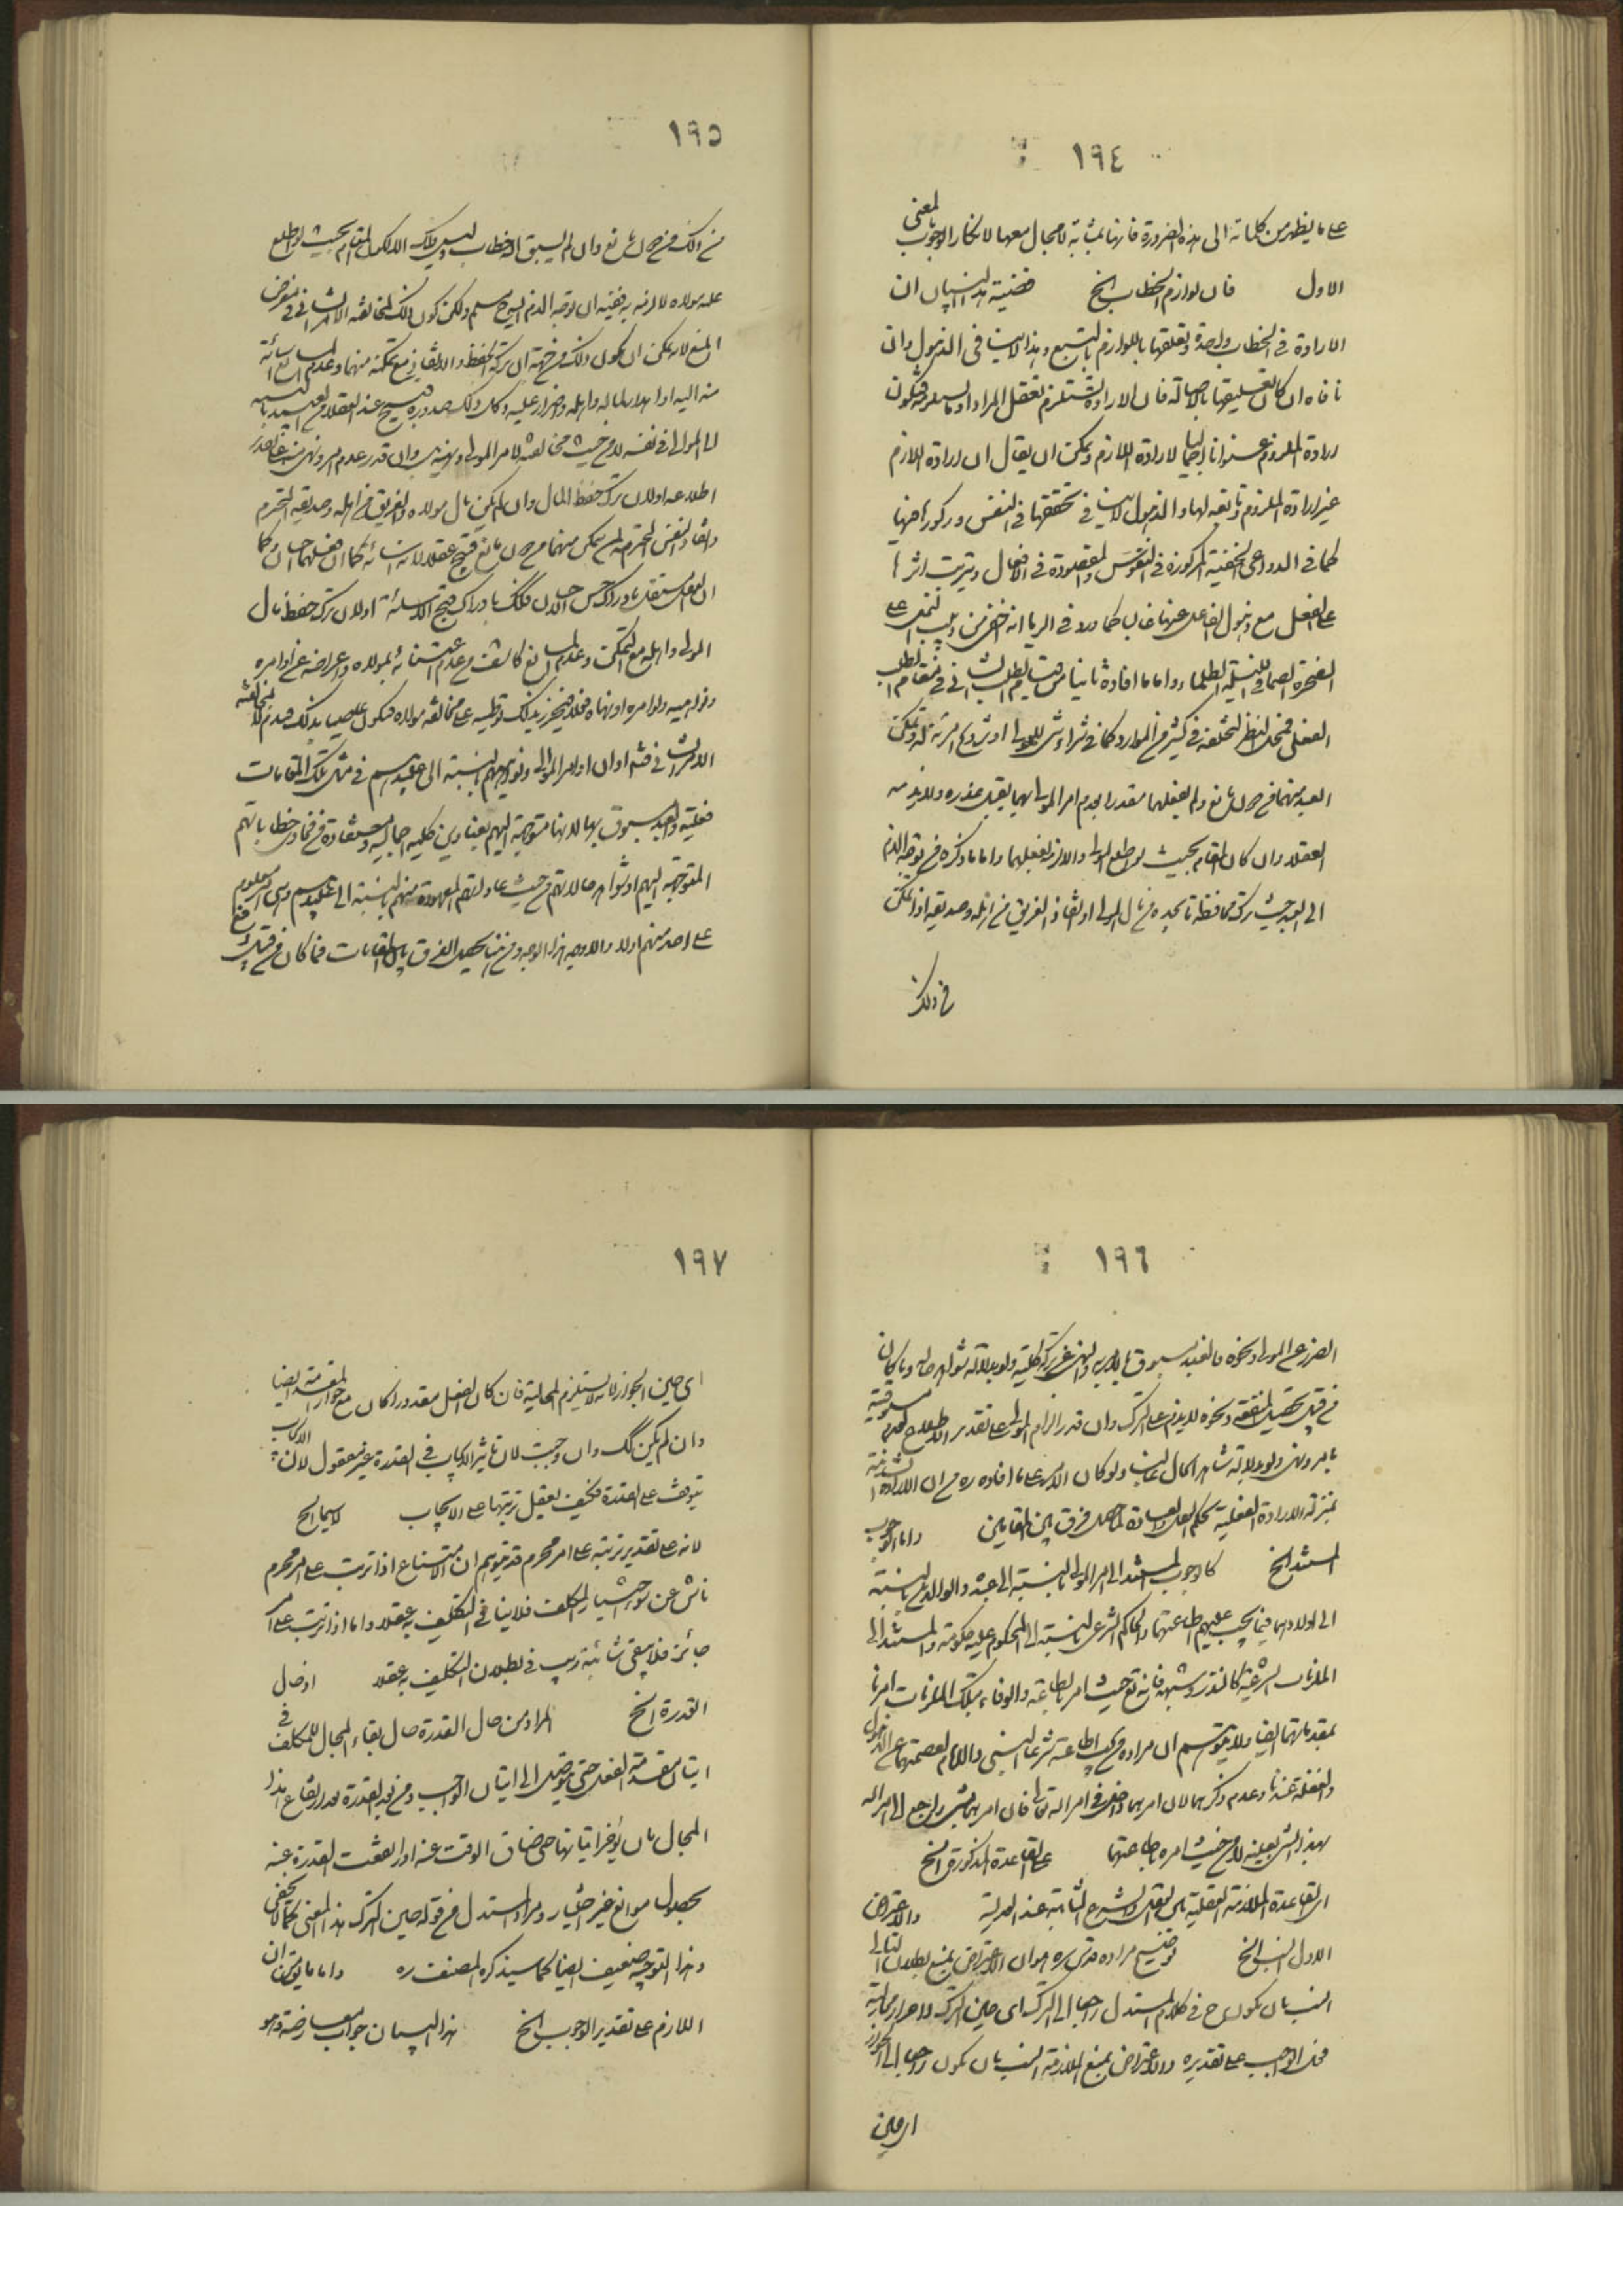 ١٩٤
على ما يظهر من كلماته الى هذه الضرورة فانها بمثابة لا مجال معها لانكار الوجوب بالمعنى
الاول فان لوازم الخطاب الخ قضية هذا البيان ان
الارادة فى الخطاب واحدة وتعلقها باللوازم بالتبع وهذا لا ينافى الذهول وان
نافاه ان كان تعليقها بالاصالة فان الارادة تستلزم تعقل المراد
ارادة الملزوم عنوانا اجماليا لارادة اللازم ويمكن ان يقال ان ارادة اللازم
غير ارادة الملزوم وتابعة لها والذهول لا ينافى تحققها فى النفس وركوزها فيها
كما فى الدواعى الخفية المركوزة فى النفوس المقصودة فى الافعال وترتب اثرها
على الفعل مع ذهول الفاعل عنها غالبا كما ورد فى الريا انه اخفى من دبيب النمل على
الصخرة الصما فى الليلة الظلماء واما ما افاده ثانيا من قيام الطلب الشانى مقام الطلب
الفعلى فمحل النظر لتخلفه فى كثير من الموارد كما فى شراء شىء للمولى او تزويج امرئة له وتمكن
العبد منهما من دون مانع ولم يفعلهما معتذرا بعدم امر المولى بهما يقبل عذره ولا يذمه
العقلاء وان كان المقام بحيث لو اطلع المولى لالزمه بفعلهما واما ما ذكره من توجه الذم
الى العبد حيث ترك محافظة ما بيده من مال المولى او انقاذ الغريق من اهله وصديقه اذا تمكن
من ذلك
١٩٥
من ذلك من دون مانع وان لم يسبق اليه خطاب ليس ذلك الا لكون المقام بحيث لو اطلع
عليه مولاه لالزمه به ففيه ان توجه الذم اليه ح مسلم ولكن كون ذلك لمخالفته الامر الشانى فى معرض
المنع لانه يمكن ان يكون ذلك من جهة ان ترك الحفظ والانقاذ مع تمكنه منهما وعدم المانع اسائة
منه اليه او اهدار لماله واهله واضرار عليه وكل ذلك صدوره قبيح عند العقلاء من العبد بالنسبة
الى المولى فى نفسه لا من حيث مخالفته لامر المولى ونهيه
اطلاعه اولا ان ترك حفظ المال وان لم يكن مال مولاه والغريق من اهله وصديقه المحترم
وانقاذ النفس المحترمة لمن يمكن منهما من دون مانع قبيح عقلا لانه اسائة كما ان فعلهما احسان كما
ان العقل مستقل بادراك حسن الاحسان فكك بادراك قبح الاسائة اولا ان ترك حفظ مال
المولى واهله مع التمكن وعدم المانع كاشف عن عدم اعتنائه بمولاه واعراضه عن اوامره
ونواهيه ولو امره او نهاه
الامر الشانى فتدبر او ان اوامر الموالى ونواهيهم بالنسبة الى عبيدهم فى مثل تلك المقامات
فعلية والعبد مسبوق بها لانها متوجهة اليهم بعناوين كلية اجمالية مستفادة من فحاوى خطاباتهم
المتوجهة اليهم او شواهد حالاتهم من حيث عاداتهم المعهودة منهم بالنسبة الى عبيدهم
على احد منهم اولاد والاوجه هذا الوجه ومن هنا يحصل الفرق بين المقامات فما كان من قبيل دفع
١٩٦
الضرر عن المولى ونحوه فالعبد مسبوق بالامر به والنهى عن تركه كلية ولو بدلالة شواهد حاله وما كان
من قبيل تحصيل المنفعة ونحوه لا يذم على الترك وان قدر الزام المولى على تقدير الاطلاع لعدم مسبوقيته
بامر ونهى ولو بدلالة شاهد الحال عليه ولو كان الامر على ما افاده ره من ان الارادة الشانية
بمنزلة الارادة الفعلية بحكم العقل والعادة لما حصل فرق بين المقامين واما الوجوب
المستند الخ كالوجوب المستند الى امر المولى بالنسبة الى عبده والوالدين بالنسبة
الى اولادهما فيما يجب عليهم اطاعتهما والحاكم الشرعى بالنسبة الى المحكوم عليه بحكومته والمستند الى
الملزمات الشرعية كالنذر وشبهه فانه تع حيث امر بالطاعة والوفاء بتلك الملزمات امر بها
بمقدماتها ايضا ولا يتوهم ان مراده من يجب اطاعته شرعا النبى والامام لعصمتهما عن الذهول
والغفلة عندنا وعدم ذكرهما لان امرهما داخل فى امر الله تعالى فان امرهما بشىء راجع الى امر الله
بهذا الشىء بعينه لا من حيث امره باطاعتهما على القاعدة المذكورة الخ
اى القاعدة الملازمة العقلية بين العقل والشرع الثابتة عند العدلية والاعتراض
الاول ايضا الخ توضيح مراده قدس سره هو ان الاعتراض بمنع بطلان التالى
انما يكون ح فى كلام المستدل راجعا الى الترك اى حين الترك
محل الواجب على تقديره والاعتراض بمنع الملازمة انما يكون راجعا الى الجواز
اى حين
١٩٧
اى حين الجواز لانه لا يستلزم المحالية فان كان الفعل مقدورا كان مع جواز المقدمة ايضا
وان لم يكن كك وان وجبت لان تاثير الايجاب فى القدرة غير معقول لان الايجاب
يتوقف على القدرة فكيف يعقل ترتبها على الايجاب لا سيما الخ
لانه على تقدير ترتبه على امر محرم قد يتوهم ان الامتناع اذا ترتب على امر محرم
ناش عن سوء اختيار المكلف فلا ينافى التكليف به عقلا واما اذا ترتب على امر
جائز فلا يبقى شائبة ريب فى بطلان التكليف به عقلا اذ حال
القدرة الخ المراد من حال القدرة حال بقاء المجال للمكلف فى
اتيان مقدمة الفعل حتى يتوصل الى اتيان الواجب ومن بعد القدرة بعد ارتفاع هذا
المجال بان يؤخر اتيانها حتى ضاق الوقت عنه او ارتفعت القدرة عنه
بحصول موانع غير اختيار ومراد المستدل من قوله حين الترك هذا المعنى كما لا يخفى
وهذا التوجيه ضعيف ايضا كما سيذكره المصنف ره واما ما يتوهم من ان
اللازم على تقدير الوجوب الخ هذا البيان جواب معارضة وهو